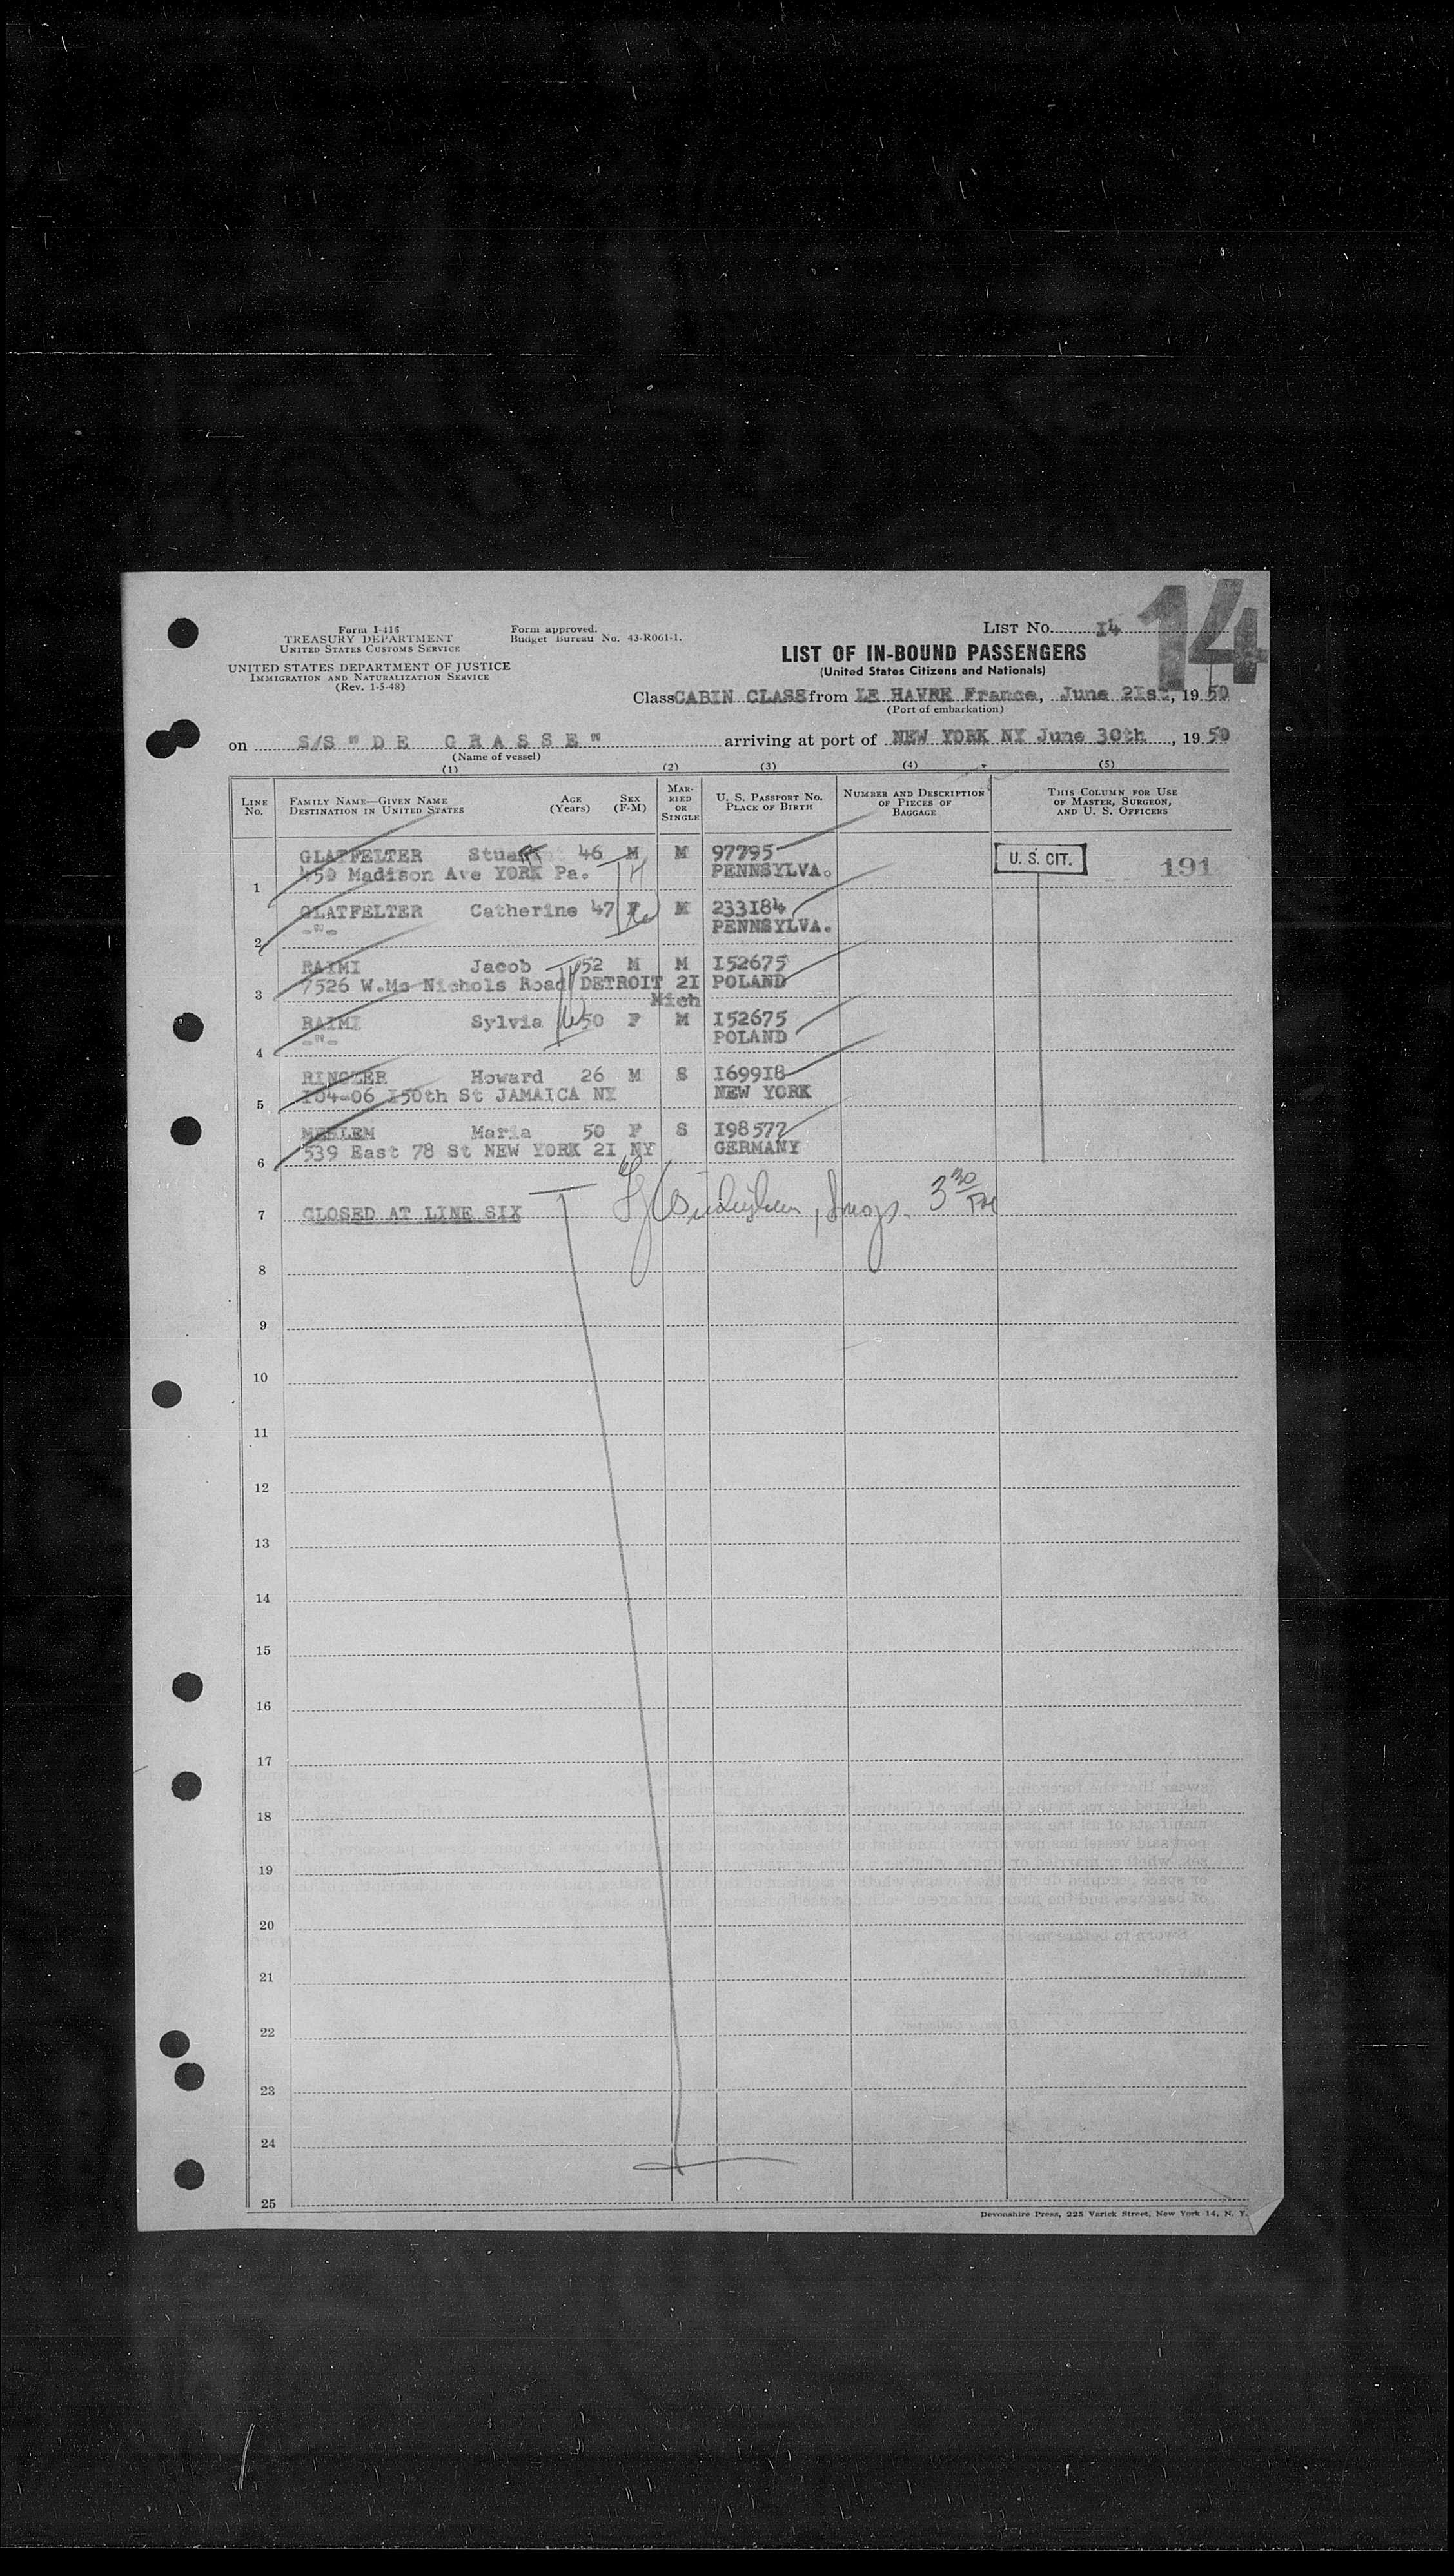 14
Form I-416
TREASURY DEPARTMENT
UNITED STATES CUSTOMS SERVICE
UNITED STATES DEPARTMENT OF JUSTICE
IMMIGRATION AND NATURALIZATION SERVICE
(Rev. 1-5-48)
Form approved.
Budget Bureau No. 43-R061-1.
LIST No. I4
LIST OF IN-BOUND PASSENGERS
(United States Citizens and Nationals)
Class CABIN CLASS from LE HAVRE France, June 2Ist, 19 50
(Port of embarkation)
on S/S " D E G R A S S E " arriving at port of NEW YORK NY June 30th, 19 50
(Name of vessel)
(1) (2) (3) (4) (5)
LINE No. FAMILY NAME—GIVEN NAME DESTINATION IN UNITED STATES AGE (Years) SEX (F-M) MARRIED OR SINGLE U. S. PASSPORT No. PLACE OF BIRTH NUMBER AND DESCRIPTION OF PIECES OF BAGGAGE THIS COLUMN FOR USE OF MASTER, SURGEON, AND U. S. OFFICERS
GLATFELTER Stuart 46 M M 97795 U. S. CIT. 191
1 450 Madison Ave YORK Pa. PENNSYLVA.
GLATFELTER Catherine 47 F M 233I84
2 -"- PENNSYLVA.
RAIMI Jacob 52 M M I52675
3 7526 W.Mc Nichols Road DETROIT 2I POLAND
Mich
RAIMI Sylvia 50 F M I52675
4 -"- POLAND
RINGLER Howard 26 M S I699I8
5 I04-06 I50th St JAMAICA NY NEW YORK
MEHLEM Maria 50 F S I98577
6 539 East 78 St NEW YORK 2I NY GERMANY
7 CLOSED AT LINE SIX 3 30 PM
8
9
10
11
12
13
14
15
16
17
18
19
20
21
22
23
24
25
Devonshire Press, 225 Varick Street, New York 14, N. Y.